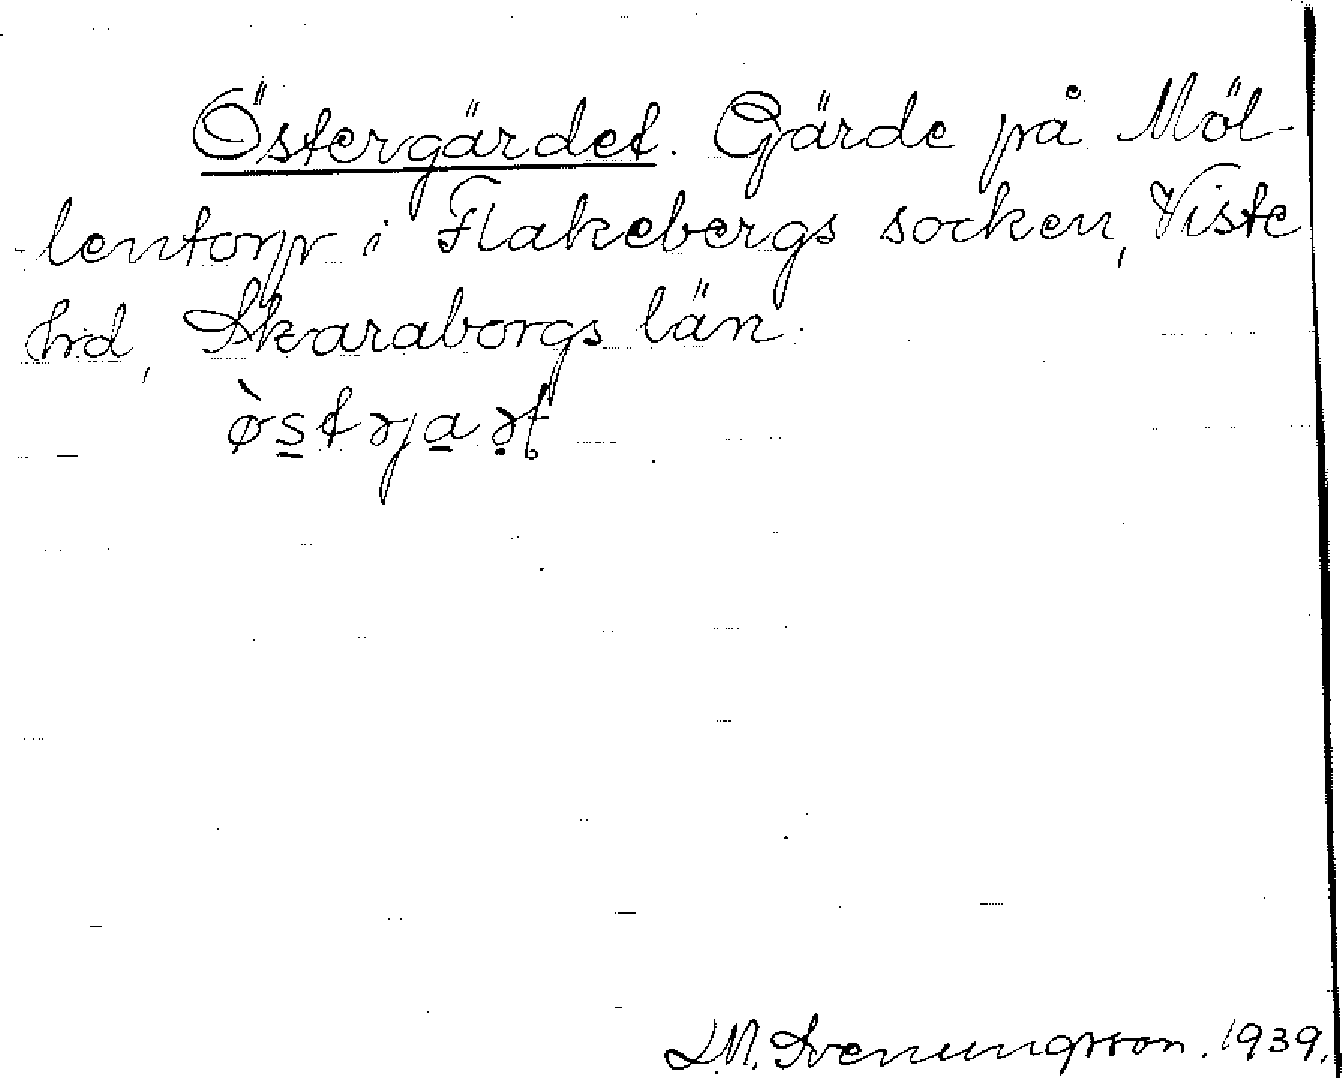 Östergärdet. Gärde på Möl-
lentorp i Flakebergs socken, Viste
hd, Skaraborgs län.
L.M. Svenungsson. 1939.